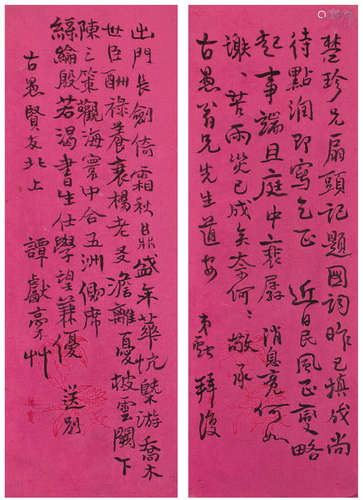 楚珍兄扇頭記題圖詞昨已填成尚
待點潤即寫乞正 近日民風丕變略
起事端且庭中 消息竟何如
謝、苦雨災已成矣奈何、敬承
古愚翁兄先生道安 弟獻拜復
出門長劍倚霜秋鼎盛年華忼槩游喬木
世臣酬祿養衰楊老叟澹離憂披雲闕下
陳三策觀海寰中合五洲側席
絲綸殷若渴書生仕學望兼優 送別
古愚賢友北上 譚獻稾艸